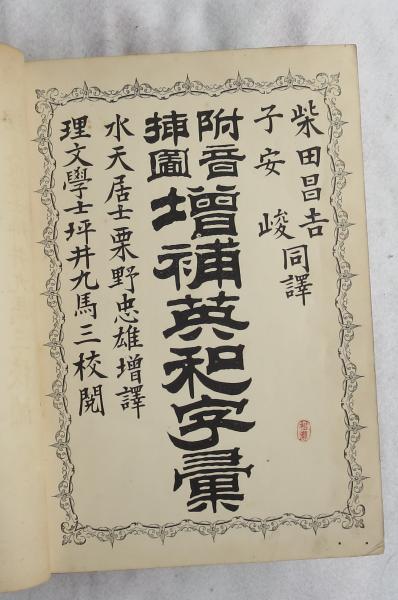 柴田昌吉
子安峻 同譯
附音
挿圖
增補英和字彙
水天居士栗野忠雄增譯
理文學士坪井九馬三校閱